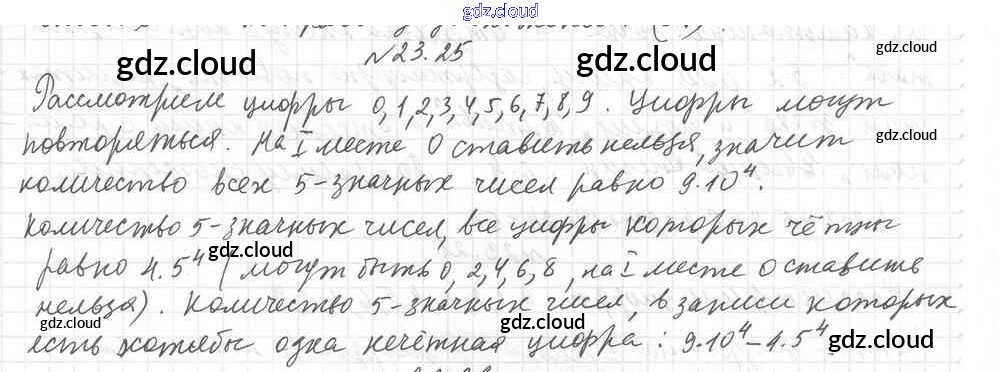 gdz.cloud
№23.25
gdz.cloud
gdz.cloud
gdz.cloud
Рассмотрим цифры 0,1,2,3,4,5,6,7,8,9. Цифры могут
повторяться. На I месте 0 ставить нельзя, значит
gdz.cloud
количество всех 5-значных чисел равно 9·10⁴.
gdz.cloud
gdz.cloud
Количество 5-значных чисел, все цифры которых чётны
gdz.cloud
gdz.cloud
равно 4·5⁴ (могут быть 0, 2, 4, 6, 8, на I месте 0 ставить
нельзя). Количество 5-значных чисел, в записи которых
gdz.cloud
gdz.cloud
есть хотя бы одна нечётная цифра: 9·10⁴–4·5⁴.
gdz.cloud